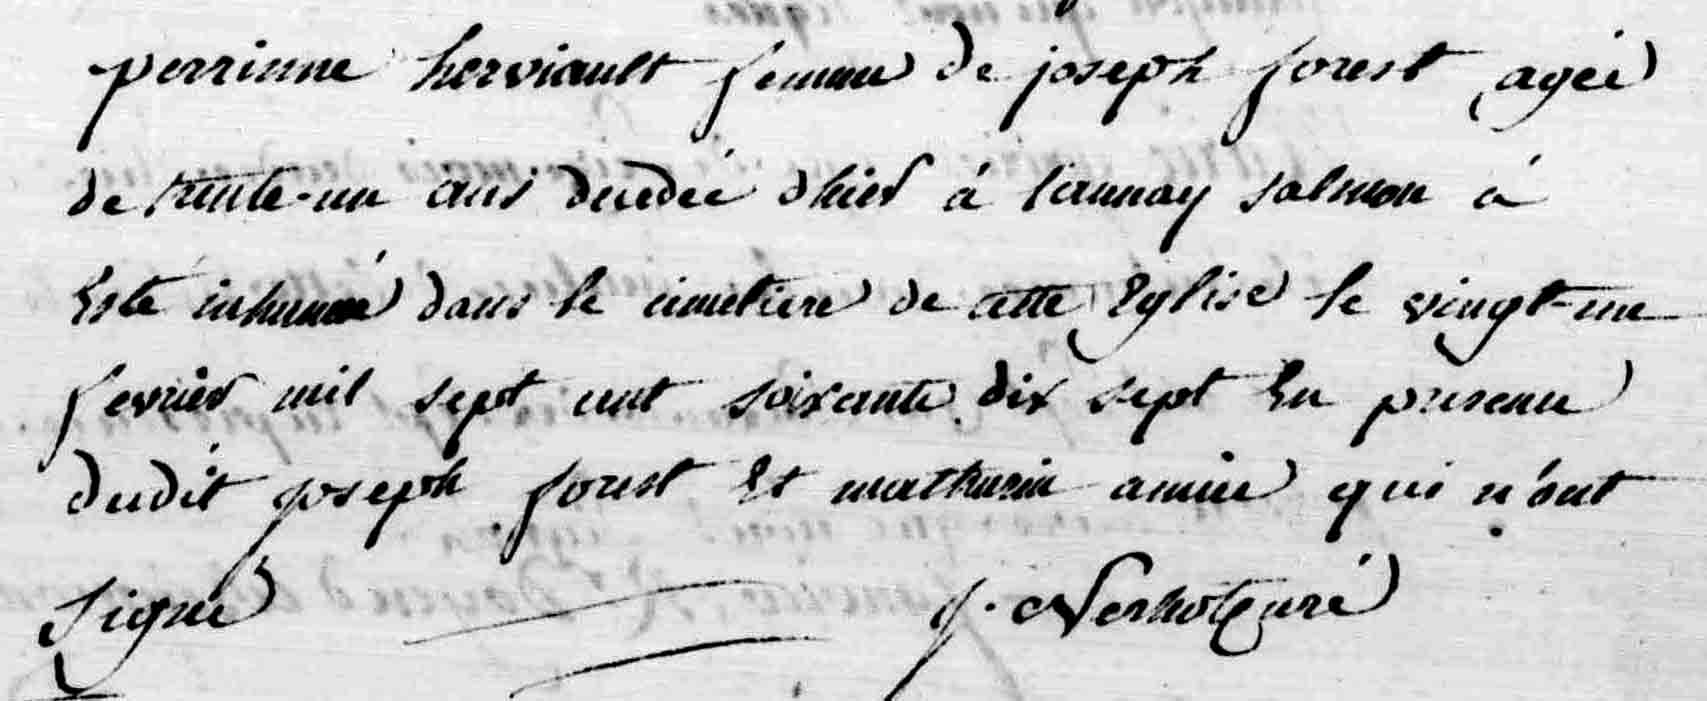 perrinne herviault femme de joseph forest agée
de trente-un ans decedée d'hier à launay salmon à
Esté inhumée dans le cimetiere de cette Eglise le vingt-un
fevrier mil sept cent soixante dix sept En presence
dudit joseph forest Et mathurin amice qui n'ont
signé